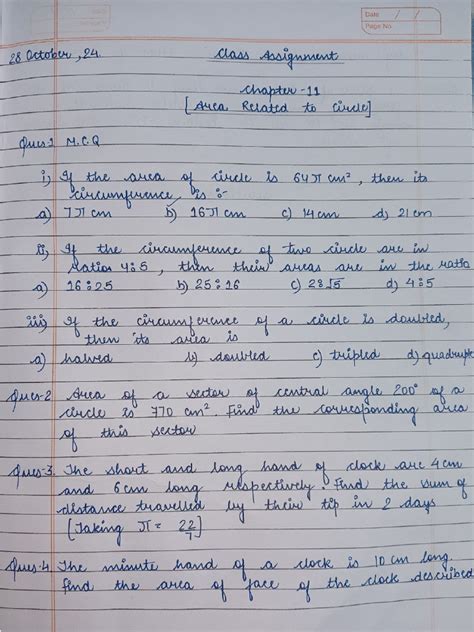 Date / /
Page No.
28 October, 24. Class Assignment
Chapter - 11
[Area Related to Circle]
Ques:1 M.C.Q
i) If the area of circle is 64π cm², then its
circumference is :-
a) 7π cm b) 16π cm c) 14 cm d) 21 cm
ii) If the circumference of two circle are in
ratios 4:5, then their areas are in the ratio
a) 16:25 b) 25:16 c) 2:√5 d) 4:5
iii) If the circumference of a circle is doubled,
then its area is
a) halved b) doubled c) tripled d) quadruple
Ques-2 Area of a sector of central angle 200° of a
circle is 770 cm². Find the corresponding area
of this sector
Ques-3. The short and long hand of clock are 4 cm
and 6 cm long respectively. Find the sum of
distance travelled by their tip in 2 days
[Taking π = 22/7]
Ques-4 The minute hand of a clock is 10 cm long.
Find the area of face of the clock described